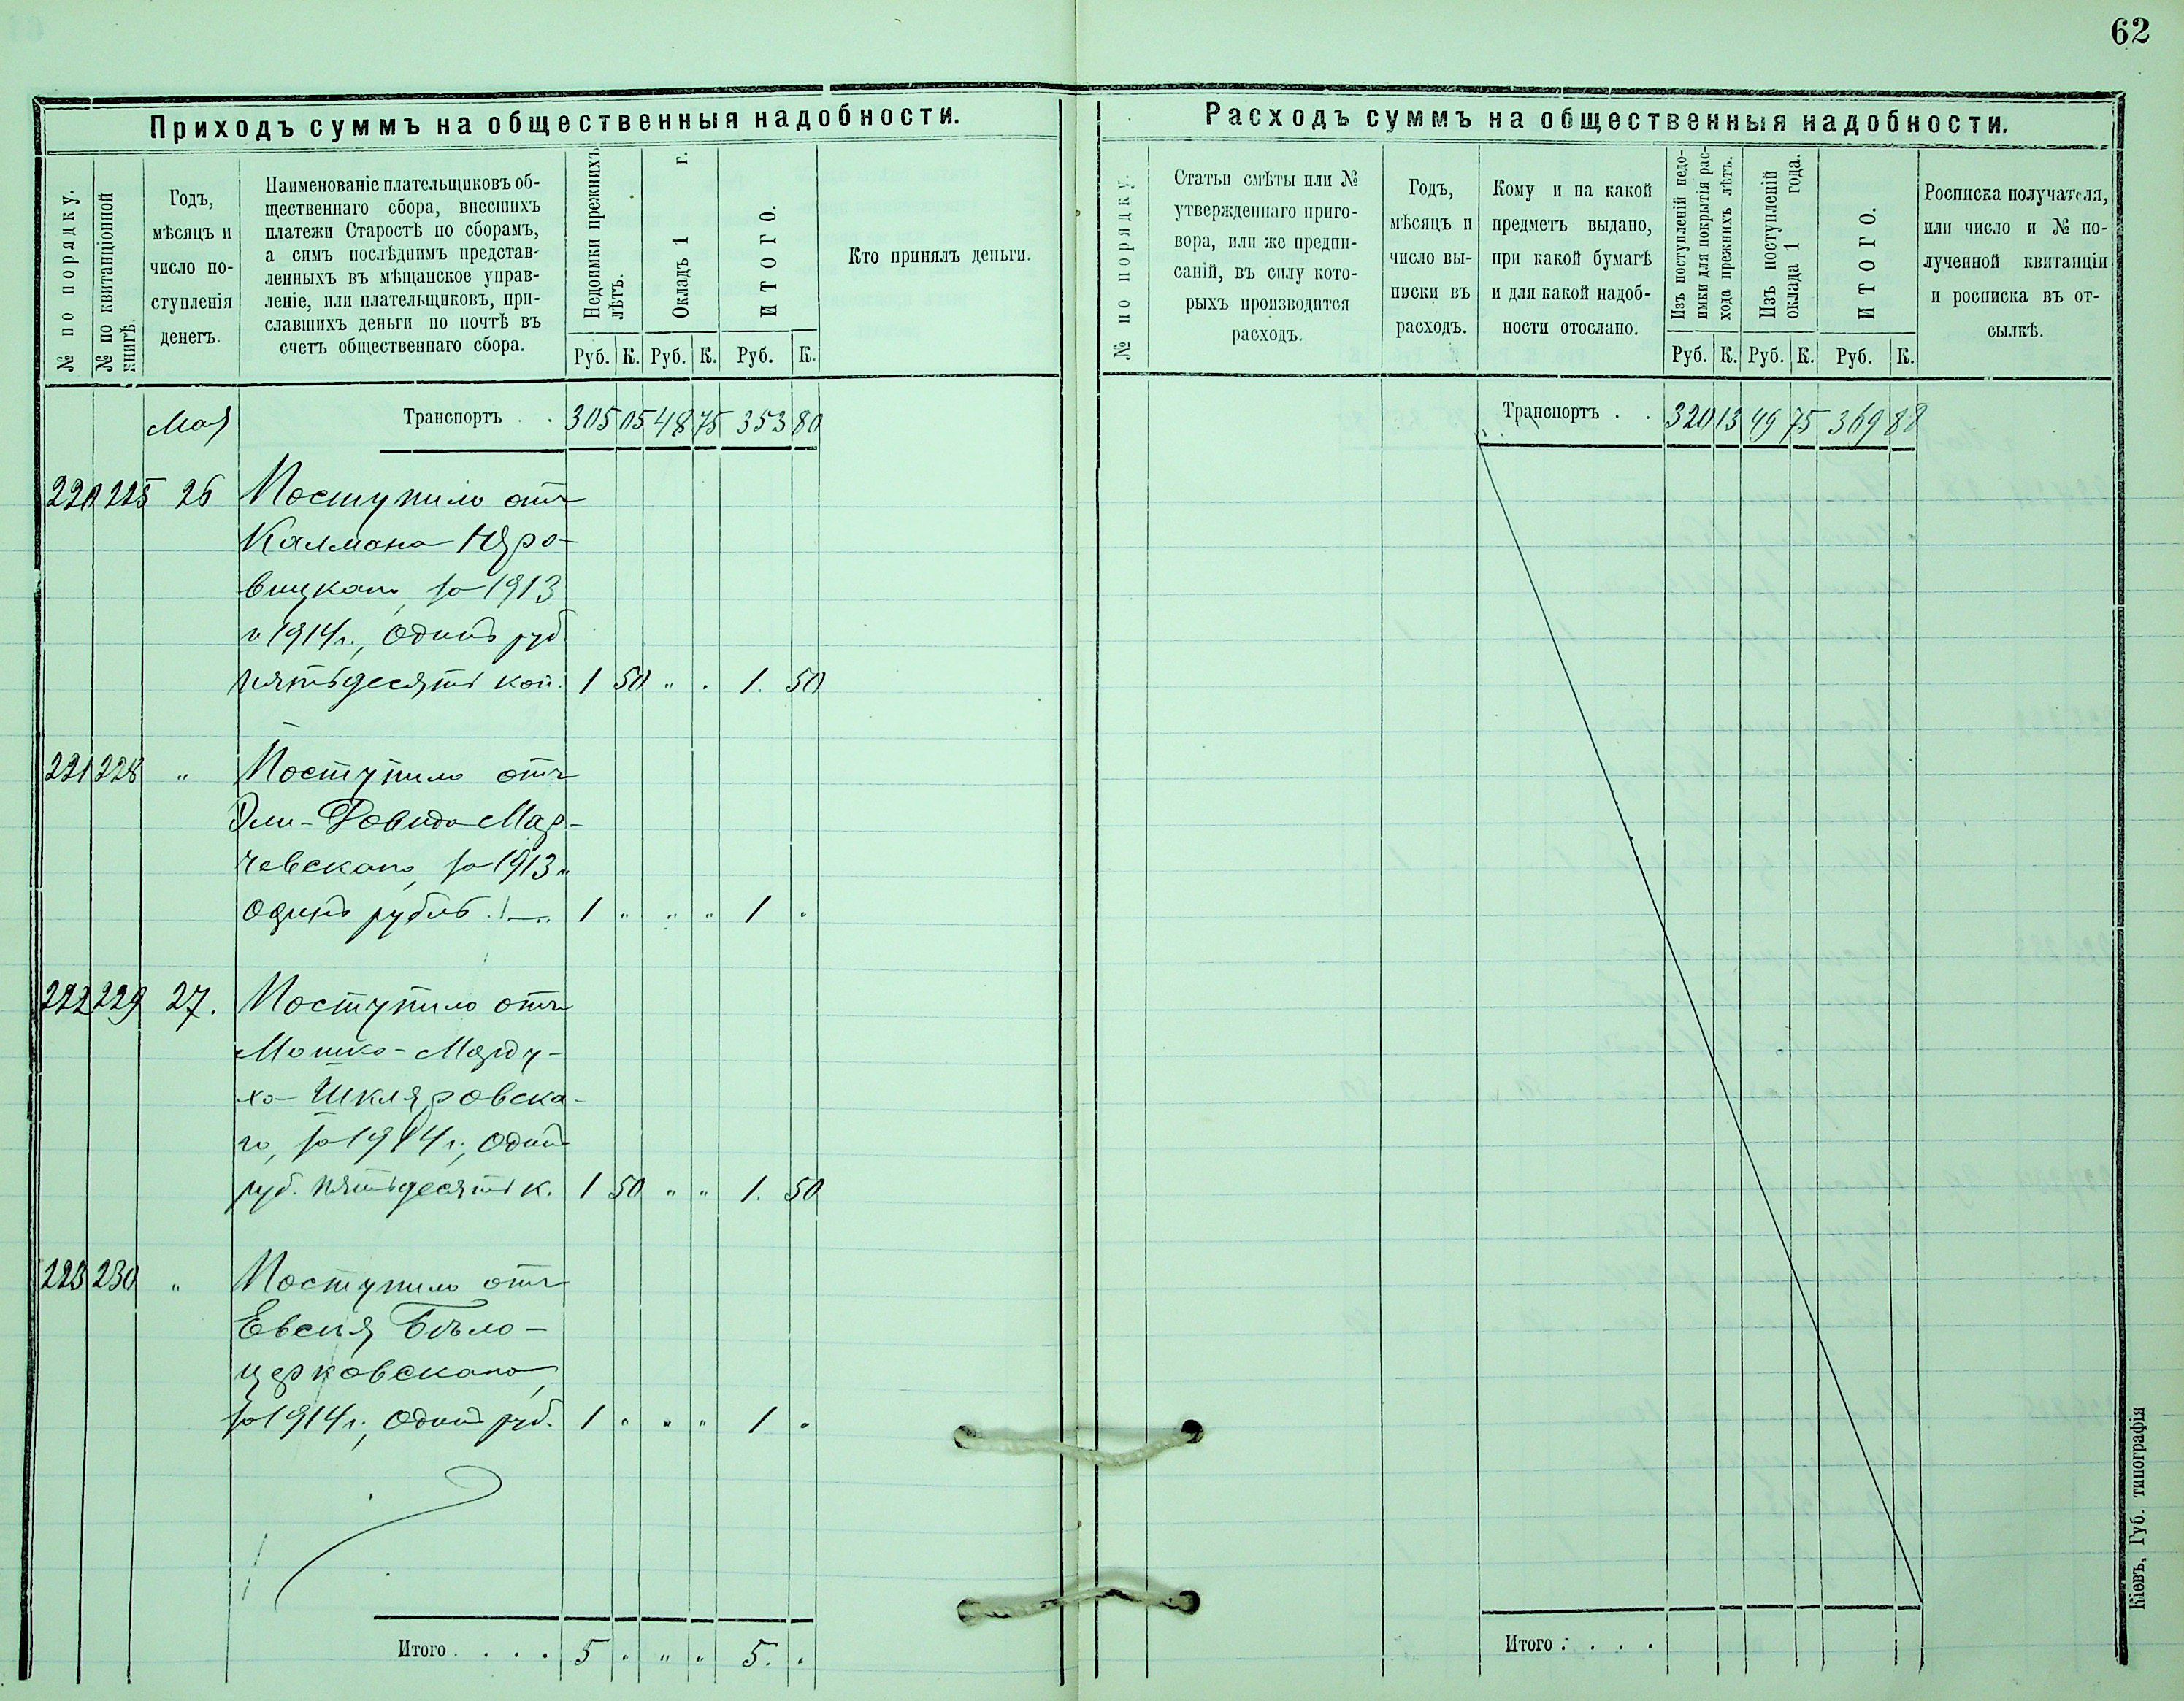 62
Приходъ суммъ на общественныя надобности.
№ по порядку.
№ по квитанціонной
книгѣ.
Годъ,
мѣсяцъ и
число по-
ступленія
денегъ.
Наименованіе плательщиковъ об-
щественнаго сбора, внесшихъ
платежи Старостѣ по сборамъ,
а симъ послѣднимъ представ-
ленныхъ въ мѣщанское управ-
леніе, или плательщиковъ, при-
славшихъ деньги по почтѣ въ
счетъ общественнаго сбора.
Недоимки прежнихъ
лѣтъ.
Окладъ 1 г.
ИТОГО.
Кто принялъ деньги.
Руб. К. Руб. К. Руб. К.
Мая Транспортъ . . 305 05 48 75 353 80
220 225 26 Поступило отъ
Калмана
за 1913
и 1914 г., одинъ руб.
пятьдесятъ коп. 1 50 „ . 1. 50
221 228 „ Поступило отъ
Эли-Довида Мар-
чевскаго, за 1913 г.
одинъ рубль. 1 „ „ „ 1 „
222 229 27. Поступило отъ
Мошко-Марду-
ха Шкляровска-
го, за 1914 г., одинъ
руб. пятьдесятъ к. 1 50 „ „ 1. 50
223 230 „ Поступило отъ
Евсея Бѣло-
церковскаго,
за 1914 г., одинъ руб. 1 „ „ „ 1 „
Итого . . . . 5 „ „ „ 5. „
Расходъ суммъ на общественныя надобности.
№ по порядку.
Статьи смѣты или №
утвержденнаго приго-
вора, или же предпи-
саній, въ силу кото-
рыхъ производится
расходъ.
Годъ,
мѣсяцъ и
число вы-
писки въ
расходъ.
Кому и на какой
предметъ выдано,
при какой бумагѣ
и для какой надоб-
ности отослано.
Изъ поступленій недо-
имки для покрытія рас-
хода прежнихъ лѣтъ.
Изъ поступленій
оклада 1 года.
ИТОГО.
Росписка получателя,
или число и № по-
лученной квитанціи
и росписка въ от-
сылкѣ.
Руб. К. Руб. К. Руб. К.
Транспортъ . . 320 13 49 75 369 88
Итого . . . .
Кіевъ, Губ. типографія